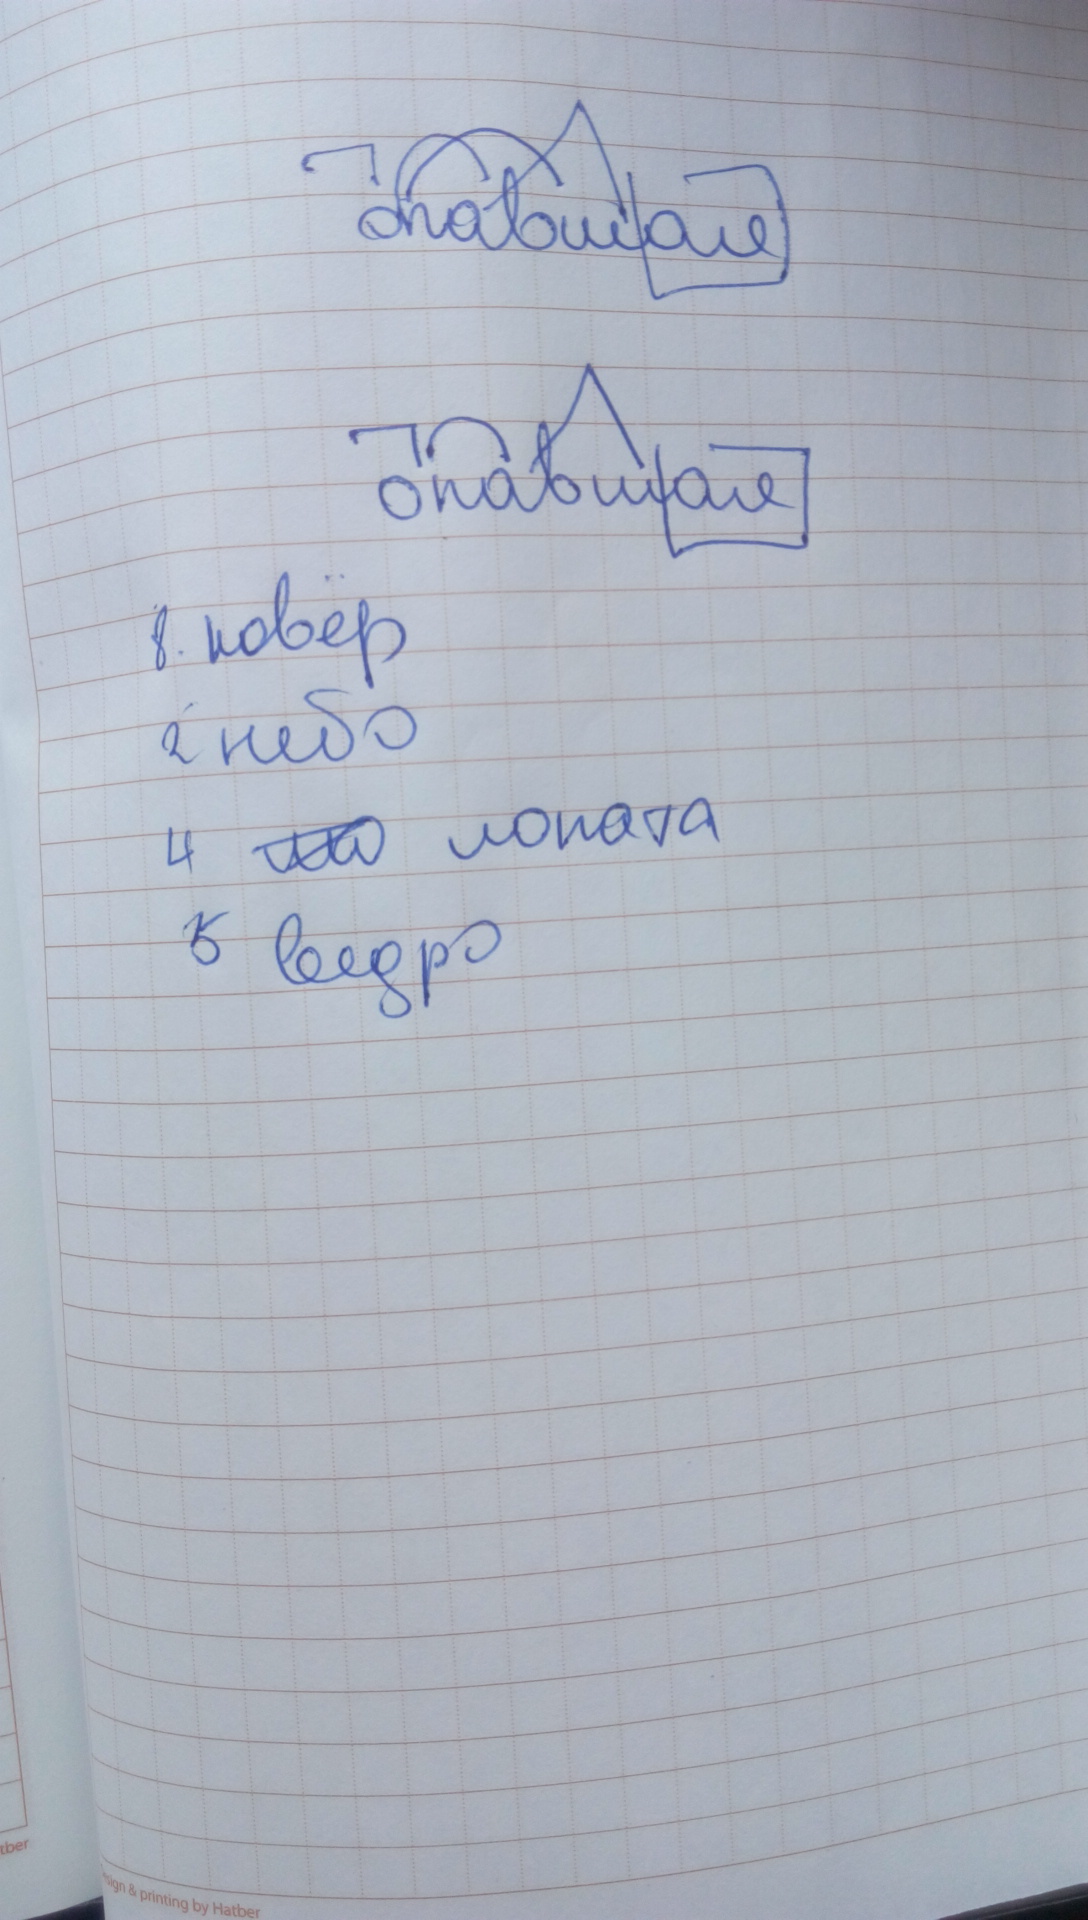 опавшая
опавшая
1. ковёр
2 небо
4 лопата
5 ведро
tber
sign & printing by Hatber